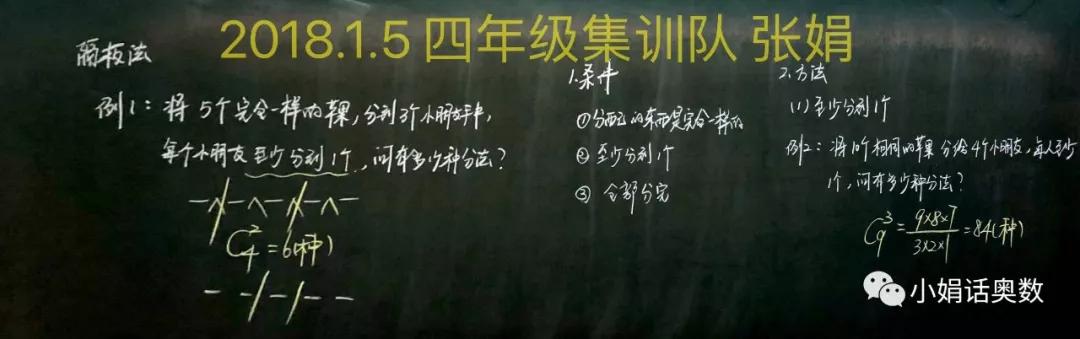 2018.1.5 四年级集训队 张娟
隔板法
例1：将5个完全一样的苹果，分到3个小朋友手中，
每个小朋友至少分到1个，问有多少种分法？
C₄²=6(种)
1.条件
①分配的东西是完全一样的
②至少分到1个
③全部分完
2.方法
(1)至少分到1个
例2：将10个相同的苹果分给4个小朋友，每人至少
1个，问有多少种分法？
C₉³=9×8×7/3×2×1=84(种)
小娟话奥数